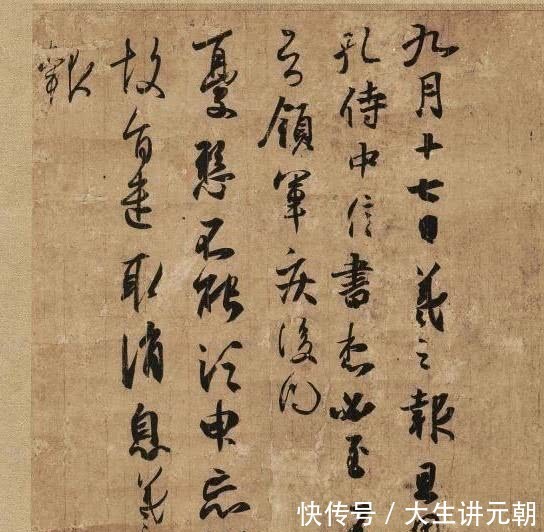 九月十七日羲之報且
孔侍中信書想必至
知領軍疾後問
憂懸不能須臾忘
故旨遣取消息羲之
報
快传号 / 大生讲元朝